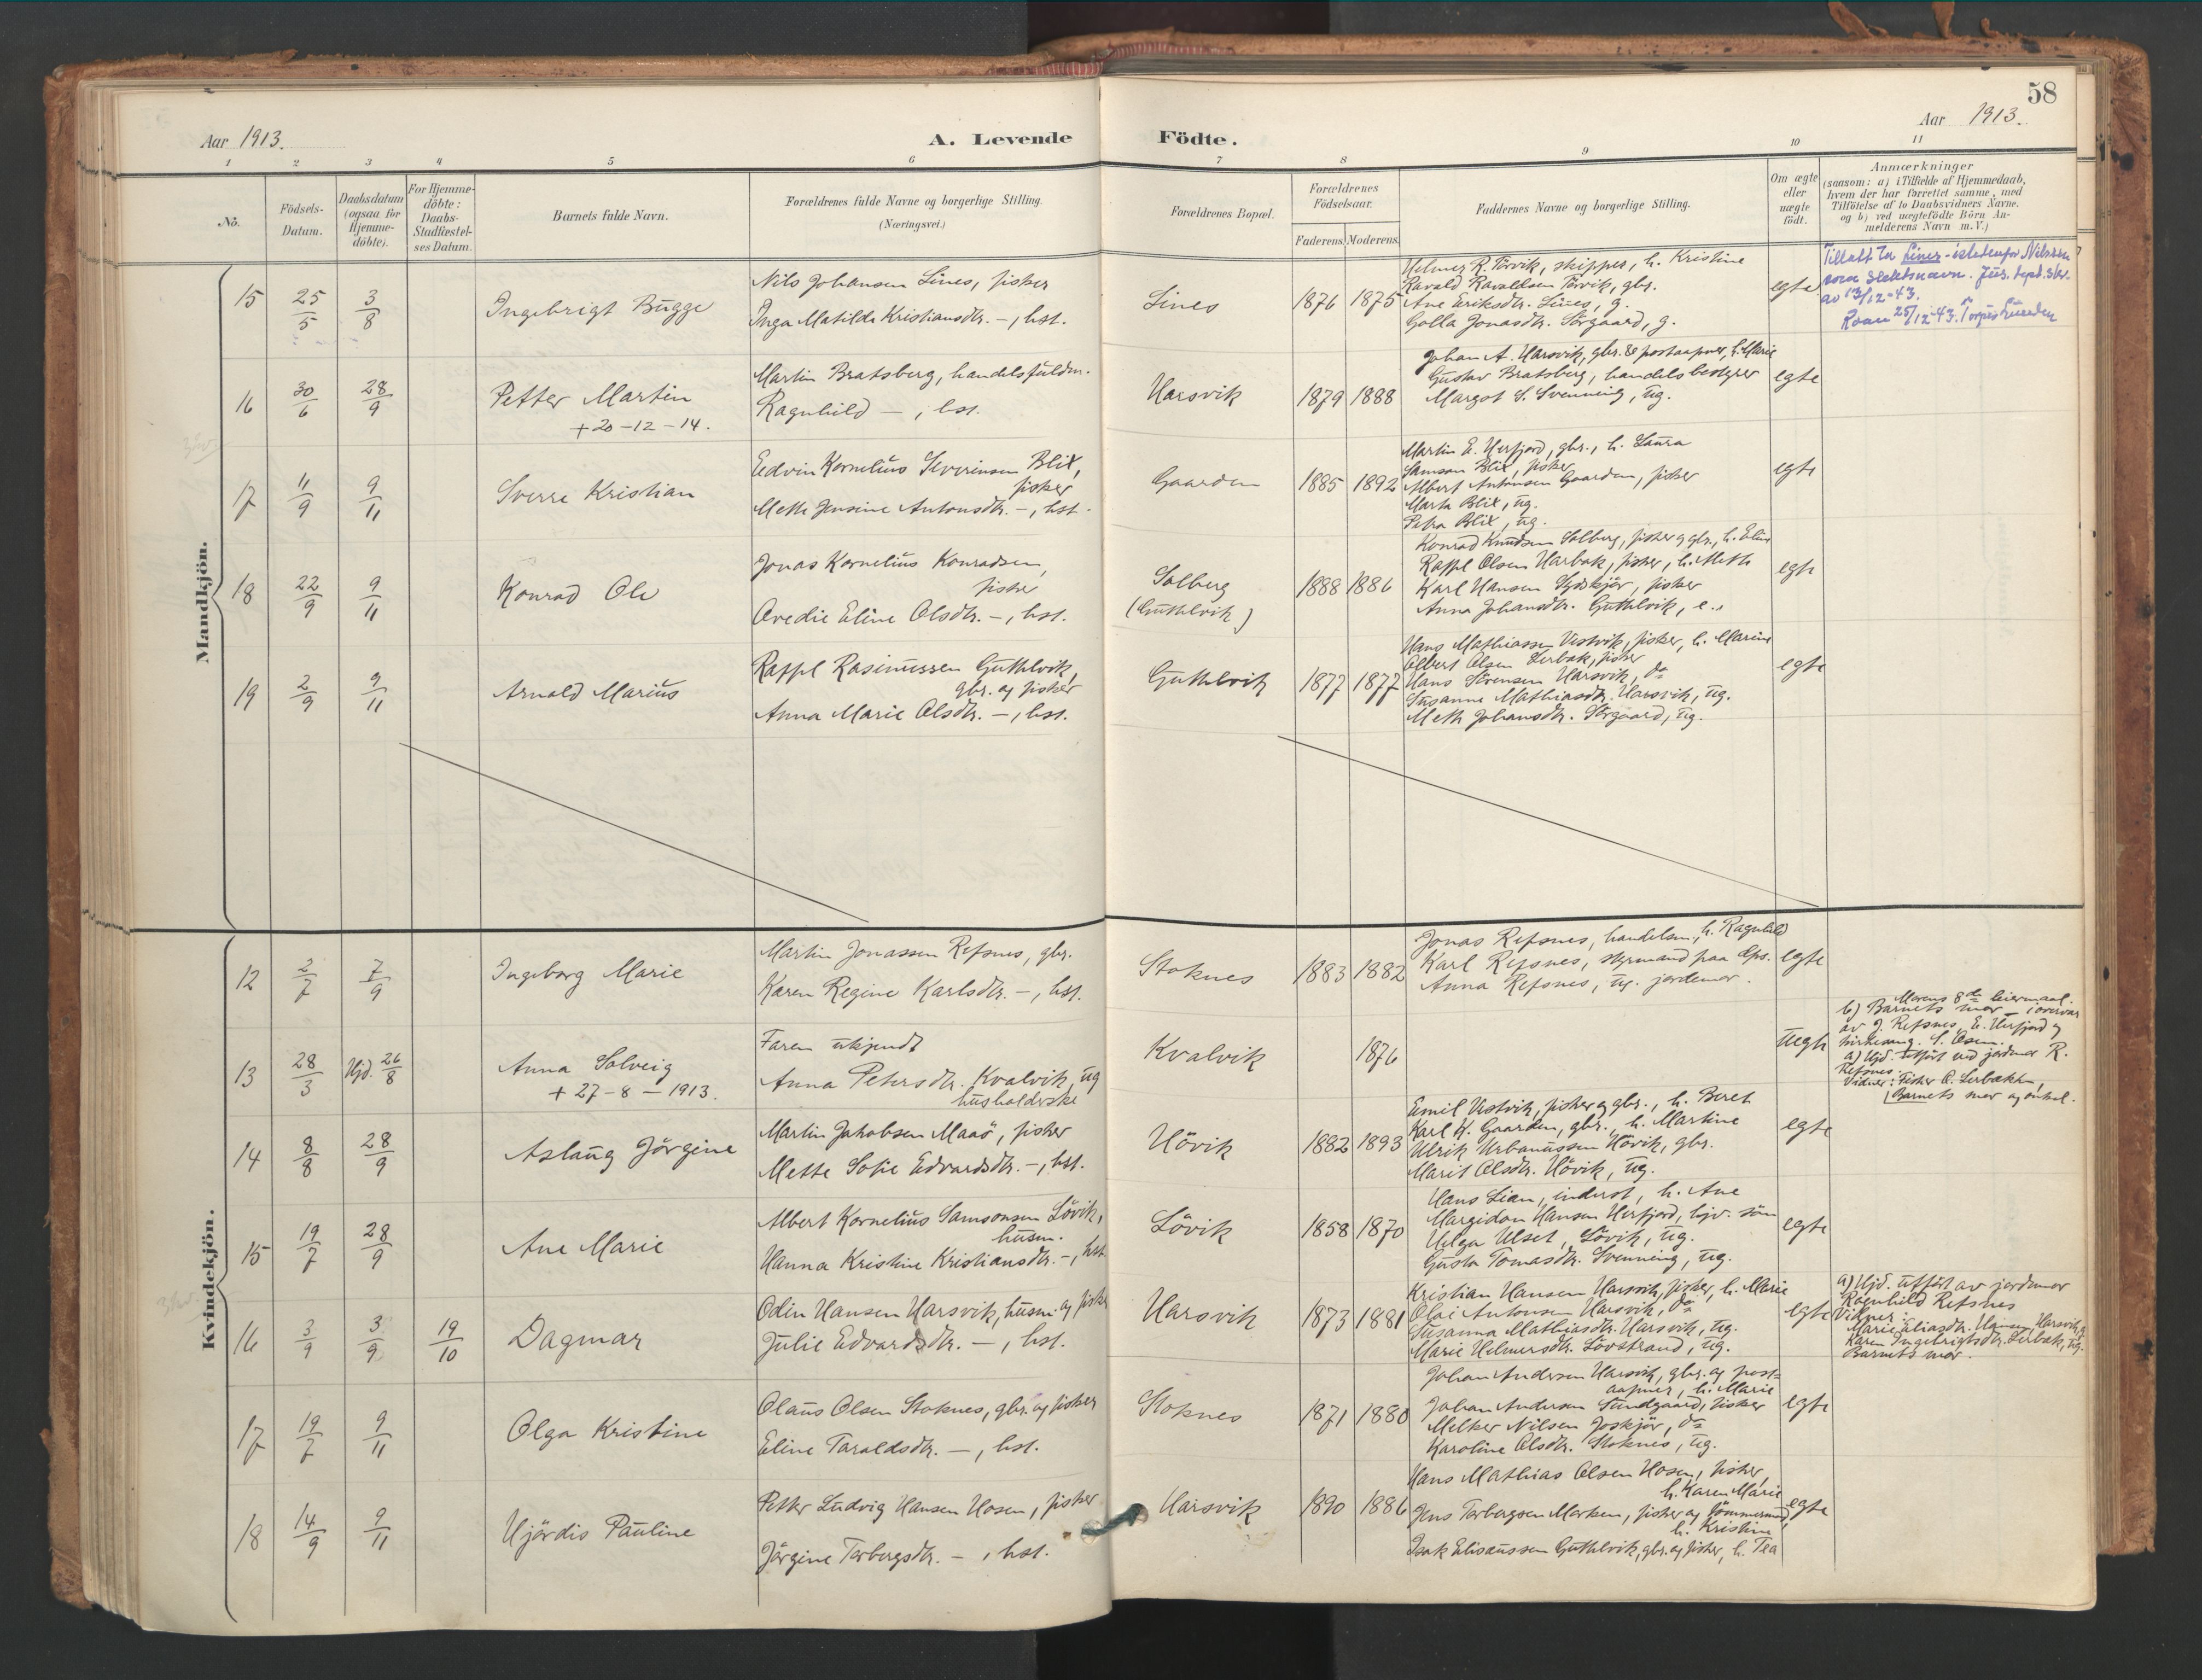 58
Aar 1913.
A. Levende Födte.
Aar 1913.
1 2 3 4 5 6 7 8 9 10 11
No.
Födsels-Datum.
Daabsdatum (ogsaa for Hjemme-döbte).
For Hjemme-döbte: Daabs-Stadfæstel-ses Datum.
Barnets fulde Navn.
Forældrenes fulde Navne og borgerlige Stilling.
(Næringsvei.)
Forældrenes Bopæl.
Forældrenes Födselsaar.
Faderens. Moderens.
Faddernes Navne og borgerlige Stilling.
Om ægte eller uægte födt.
Anmærkninger
(saasom: a) i Tilfælde af Hjemmedaab,
hvem der har forrettet samme, med
Tilföielse af to Daabsvidners Navne.
og b) ved uægtefödte Börn An-
melderens Navn m.V.)
Mandkjön.
15 25/5 3/8 Ingebrigt Bugge
Nils Johansen Lines, fisker
Inga Matilde Kristiansdtr. – , hst.
Lines 1876 1875
Helmer R. Torvik, skipper, h. Kristine
Ravald Ravaldsen Torvik, gbr.
Ane Eriksdtr. Lines, g.
Golla Jonasdtr. Sörgaard, g.
egte
Tillatt ta Lines istedenfor Nilssen
som slektsnavn. Jus. dept. skr.
av 13/12-43.
Roan 25/12-43.
16 30/6 28/9 Petter Martin
+ 20-12-14.
Martin Bratsberg, handelsfuldm.
Ragnhild – , hst.
Harsvik 1879 1888
Johan A. Harsvik, gbr. & postaapner, h. Marie
Gustav Bratsberg, handelsbestyrer
Margot S. Svenning, ug.
egte
17 11/9 9/11 Sverre Kristian
Edvin Kornelius Severinsen Blix,
fisker
Meth Jensine Antonsdtr. – , hst.
Gaarden 1885 1892
Martin E. Herfjord, gbr., h. Laura
Samson Blix, fisker
Albert Antonsen Gaarden, fisker
Marta Blix, ug.
Petra Blix, ug.
egte
18 22/9 9/11 Konrad Ole
Jonas Kornelius Konradsen,
fisker
Ovedie Eline Olsdtr. – , hst.
Solberg
(Guthelvik)
1888 1886
Konrad Knudsen Solberg, fisker og gbr., h. Eline
Raffel Olsen Harbak, fisker, h. Meth
Karl Hansen Sydskjör, fisker
Anna Johansdtr. Guthelvik, e.
egte
19 2/9 9/11 Arnold Marius
Raffel Rasmussen Guthelvik,
gbr. og fisker
Anna Marie Olsdtr. – , hst.
Guthelvik 1877 1877
Hans Mathiassen Vestvik, fisker, h. Marine
Albert Olsen Lerbak, fisker
Hans Sörensen Harsvik, do
Susanne Mathiasdtr. Harsvik, ug.
Meth Johansdtr. Sörgaard, ug.
egte
Kvindekjön.
12 2/7 7/9 Ingeborg Marie
Martin Jonassen Refsnes, gbr.
Karen Regine Karlsdtr. – , hst.
Stoknes 1883 1882
Jonas Refsnes, handelsm., h. Ragnhild
Karl Refsnes, styrmand paa dps.
Anna Refsnes, ug. jordemor.
egte
13 28/3 Hjd. 26/8 Anna Solveig
+ 27-8-1913.
Faren ukjendt
Anna Petersdtr. Kvalvik, ug
husholderske
Kvalvik 1876
uegte
Morens 8de leiermaal.
b) Barnets mor i overvær
av J. Refsnes, E. Herfjord og
kirkesang. S. Osen.
a) Hjd. utfört ved jordmor R.
Refsnes.
Vidner: Fisker O. Lerbakken,
Barnets mor og onkel.
14 8/8 28/9 Aslaug Jörgine
Martin Jakobsen Maaö, fisker
Mette Sofie Edvardsdtr. – , hst.
Hövik 1882 1893
Emil Vestvik, fisker og gbr., h. Beret
Karl K. Gaarden, gbr., h. Martine
Ulrik Urbanussen Hövik, gbr.
Marit Olsdtr. Hövik, ug.
egte
15 19/7 28/9 Ane Marie
Albert Kornelius Samsonsen Lövik,
husm.
Hanna Kristine Kristiansdtr. – , hst.
Lövik 1858 1870
Hans Lian, inderst, h. Ane
Margidon Hansen Herfjord, hjv. sön
Helga Ulset, Lövik, ug.
Gusta Tomasdtr. Svenning, ug.
egte
16 3/9 3/9 19/10 Dagmar
Odin Hansen Harsvik, husm. og fisker
Julie Edvardsdtr. – , hst.
Harsvik 1873 1881
Kristian Hansen Harsvik, fisker, h. Marie
Olai Antonsen Harsvik, do
Susanna Mathiasdtr. Harsvik, ug.
Marie Helmersdtr. Lövstrand, ug.
egte
a) Hjd. utfört av jordemor
Ragnhild Refsnes
Vidner:
Marie Eliasdtr. Harsvik,
Karen Ingebrigtsdtr. Lerbak, ug.
Barnets mor.
17 19/7 9/11 Olga Kristine
Olaus Olsen Stoknes, gbr. og fisker
Eline Taraldsdtr. – , hst.
Stoknes 1871 1880
Johan Andersen Harsvik, gbr. og post-
aapner, h. Marie
Johan Andersen Sundgaard, fisker
Melker Nilsen Joskjör, do
Karoline Olsdtr. Stoknes, ug.
egte
18 14/9 9/11 Hjördis Pauline
Petter Ludvig Hansen Hosen, fisker
Jörgine Torbergsdtr. – , hst.
Harsvik 1890 1886
Hans Mathias Olsen Hosen, fisker,
h. Karen Marie
Jens Torbergsen Morken, fisker og tömmermand,
h. Kristine
Isak Elisaussen Guthelvik, gbr. og fisker, h. Tea
egte